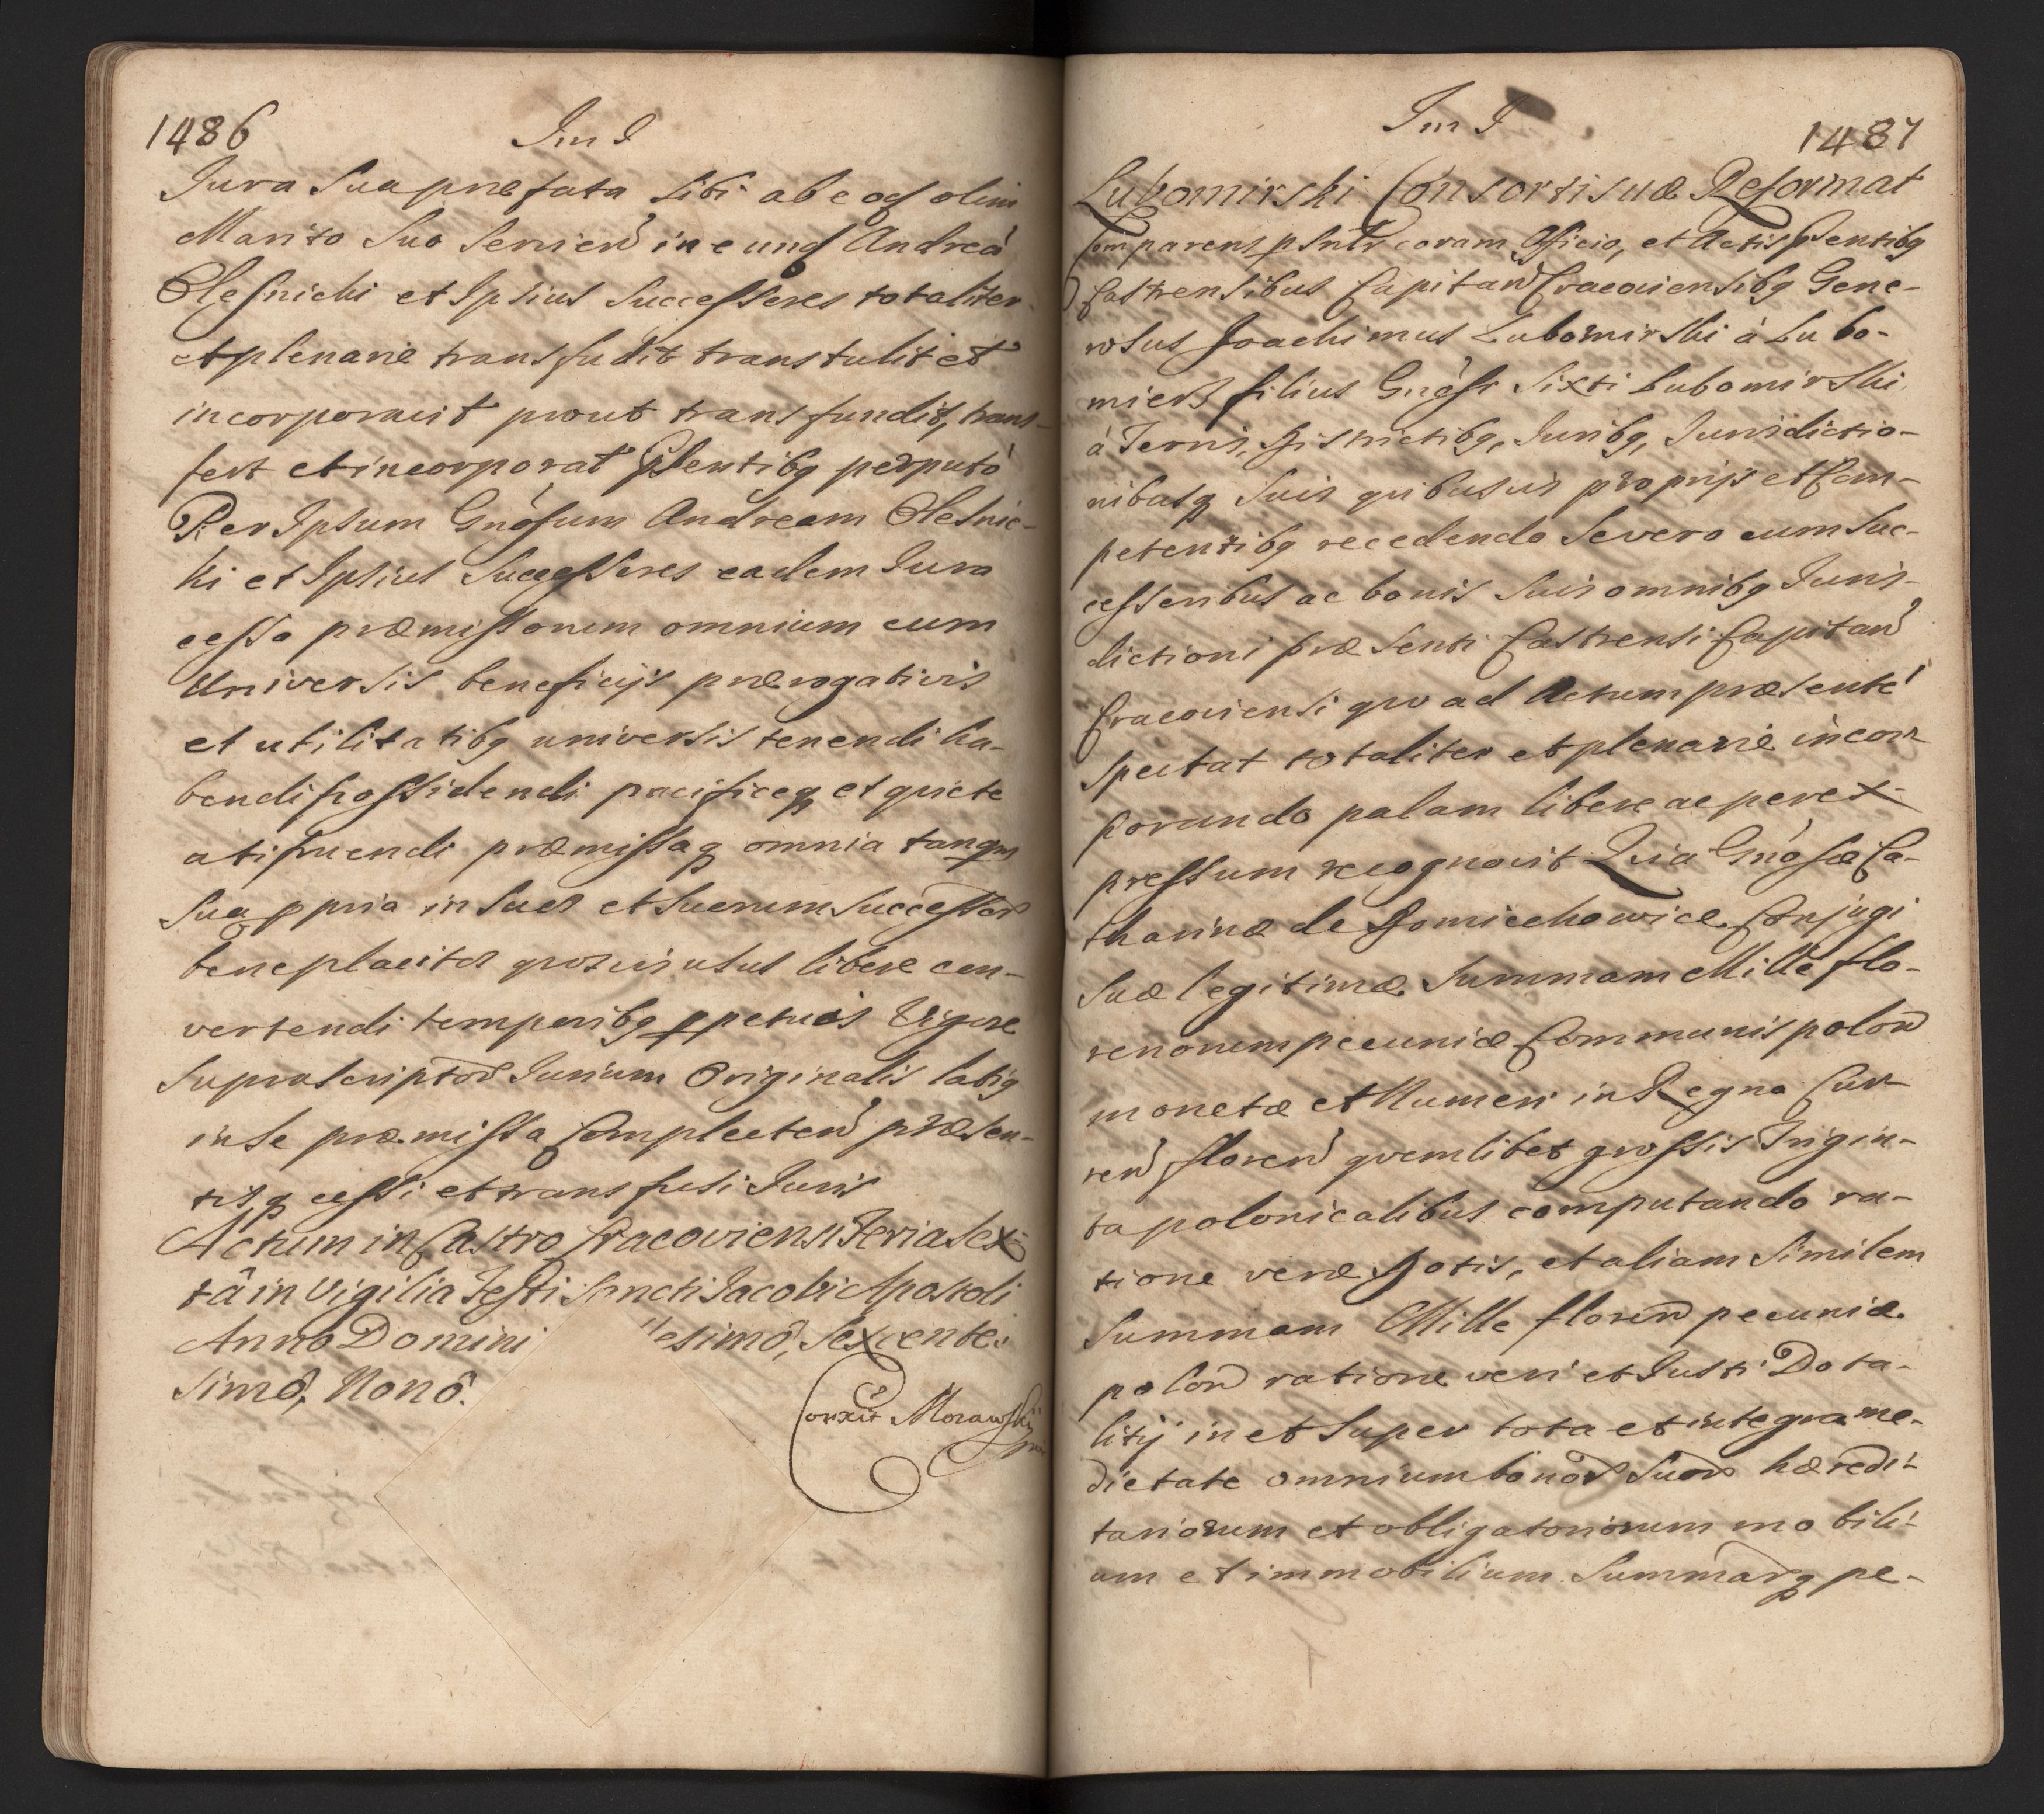 1486
Im I
Jura sua præfata sibi ab eoq olim
Marito suo servien in eunq Andreã
Olesnicki et Ipsius Successores totaliter
et plenarie transfudit transtulit et
incorporavit prout transfundit, trans-
fert et incorporat Psentibq perputo
Per Ipsum Gnosum Andream Olesnic-
ki et Ipsius Successores eadem Jura
cessa præmissorum omnium cum
Universis beneficijs prærogativis
et utilitatibq universis tenendi ha-
bendi possidendi pacificeq et quiete
utifruendi præmissaq omnia tanqm
sua ppria in suos et suorum Successor
beneplacitos quosvis usus libere con-
vertendi temporibq ppetuis Vigore
Suprascriptor Jurium Originalis latiq
in se præmissa Complecten præsen-
tisq cessi et transfusi Juris
Actum in Castro Cracoviensi Feria Sex-
tâ in Vigilia Festi Sancti Jacobi Apostoli
Anno Domini esimô, Sexcente-
simô, Nonô.
Corxit Morawski
Im I
1487
Lubomirski Consorti suæ Reformat
Comparens psntr coram Officio, et Actis Psentibq
Castrensibus Capitan Cracoviensibq Gene-
rosus Joachimus Lubomirski à Lubo-
mierz filius Gnosi Sixti Lubomirski
à Terris, Districtibq, Juribq, Jurisdictio-
nibusq suis quibusvis proprijs et Com-
petentibq recedendo se vero cum Suc-
cessoribus ac bonis suis omnibq Juris-
dictioni præsenti Castrensi Capitan
Cracoviensi quo ad Actum præsentê
spectat totaliter et plenarie incor-
porando palam libere ac per ex-
pressum recognovit Quia Gnosæ Ca-
tharinæ de Domiechowice Conjugi
suæ legitimæ Summam Mille flo-
renorum pecuniæ Communis polon
monetæ et Numeri in Regno Cur-
ren floren quemlibet grossis Trigin-
ta polonicalibus computando ra-
tione veræ Dotis, et aliam similem
Summam Mille floren pecuniæ
polon ratione veri et Justi Dota-
litij in et super tota et integra me-
dietate omnium bonor suor hæredi-
tariorum et obligatoriorum mobili-
um et immobilium Summarq pe-